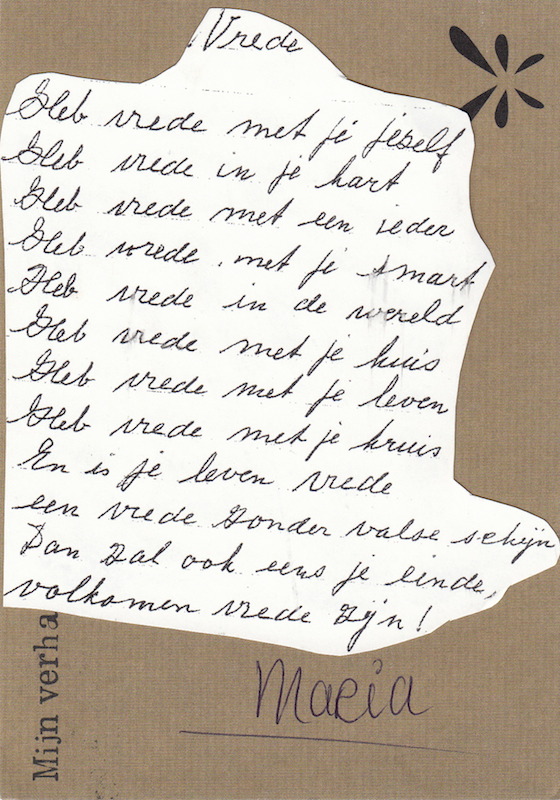 Vrede
Heb vrede met je jezelf
Heb vrede in je hart
Heb vrede met een ieder
Heb vrede met je smart
Heb vrede in de wereld
Heb vrede met je huis
Heb vrede met je leven
Heb vrede met je kruis
En is je leven vrede
een vrede zonder valse schijn
Dan zal ook eens je einde,
volkomen vrede zijn!
Maria
Mijn verha